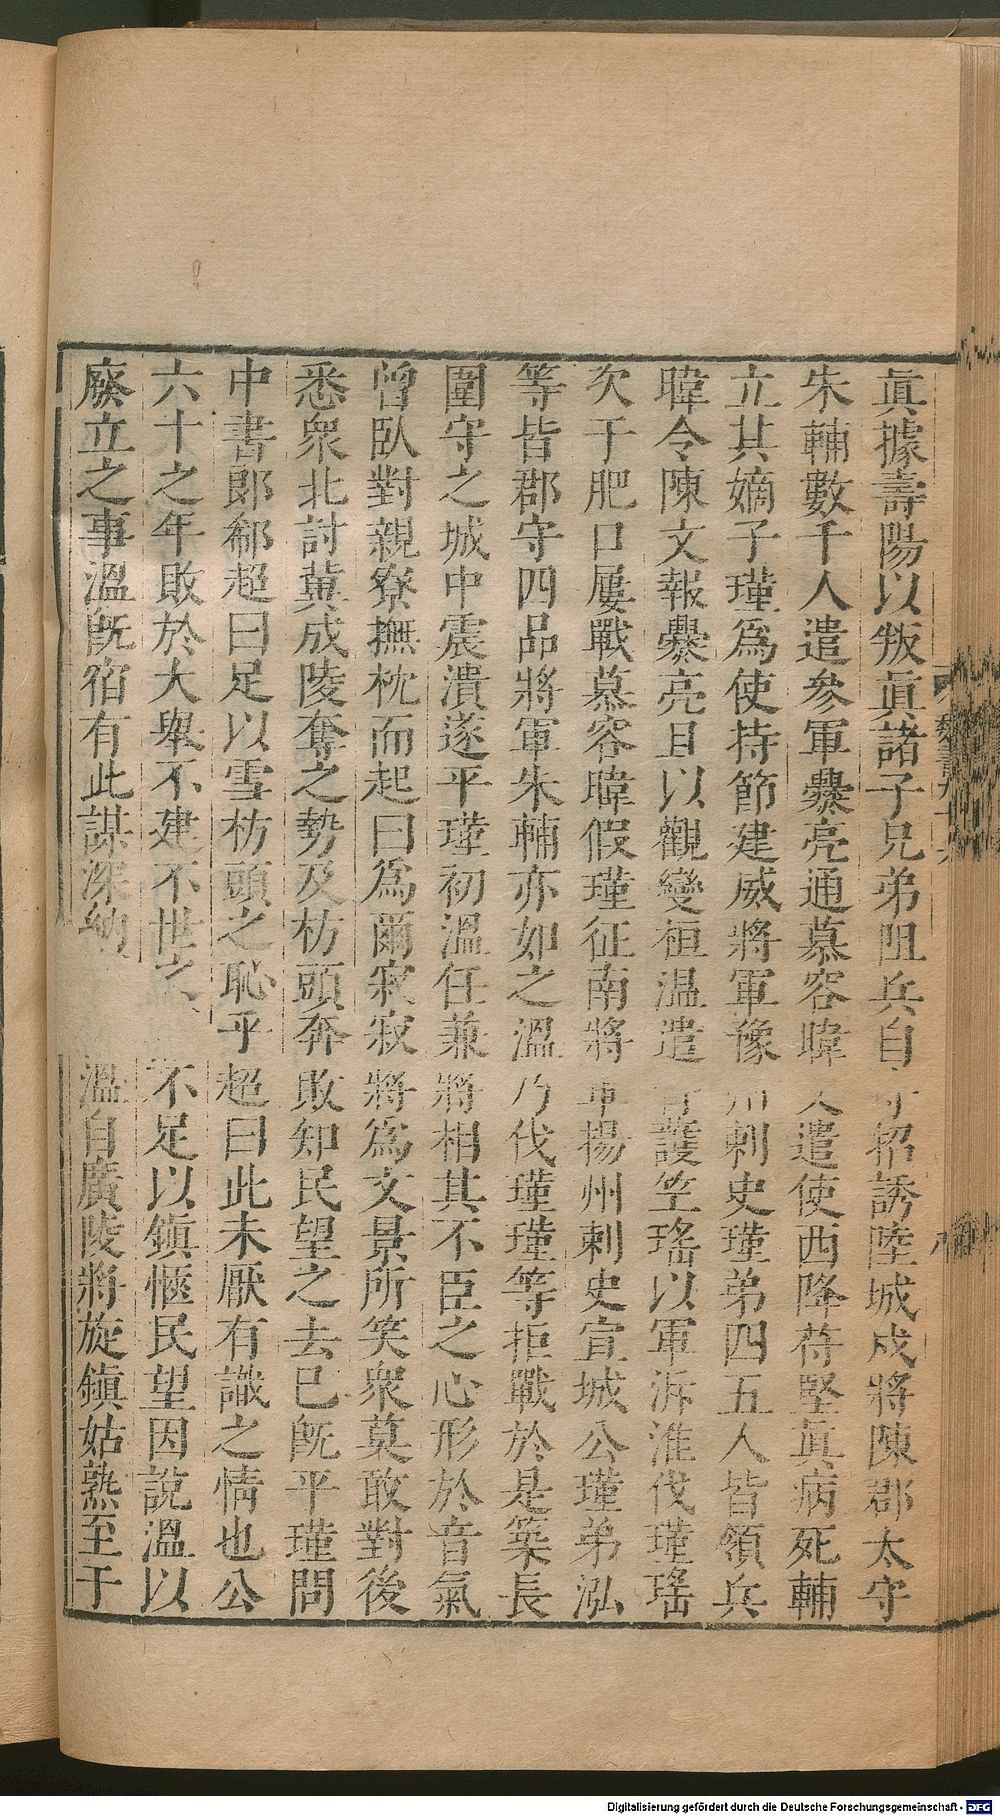 眞據壽陽以叛眞諸子兄弟阻兵自守招誘陸城戍將陳郡太守
朱輔數千人遣參軍爨亮通慕容暐又遣使西降苻堅眞病死輔
立其嫡子瑾爲使持節建威將軍豫州刺史瑾弟四五人皆領兵
暐令陳文報爨亮且以觀變桓溫遣督護竺瑤以軍泝淮伐瑾瑤
次于肥口屢戰慕容暐假瑾征南將軍揚州刺史宣城公瑾弟泓
等皆郡守四品將軍朱輔亦如之溫乃伐瑾瑾等拒戰於是築長
圍守之城中震潰遂平瑾初溫任兼將相其不臣之心形於音氣
曾臥對親寮撫枕而起曰爲爾寂寂將爲文景所笑衆莫敢對後
悉衆北討冀成陵奪之勢及枋頭奔敗知民望之去已旣平瑾問
中書郞郗超曰足以雪枋頭之恥乎超曰此未厭有識之情也公
六十之年敗於大舉不建不世之 不足以鎭愜民望因說溫以
廢立之事溫旣宿有此謀深納 溫自廣陵將旋鎭姑熟至于
魏書九十六
Digitalisierung gefördert durch die Deutsche Forschungsgemeinschaft - DFG